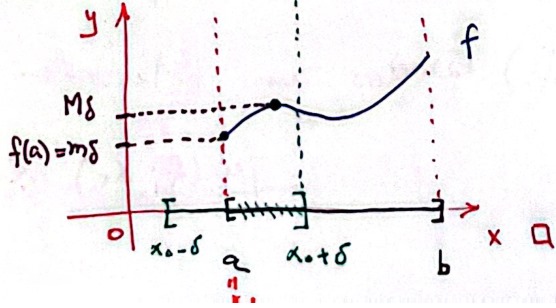 y
f
Mδ
f(a)=mδ
0 x₀-δ a x₀+δ b x
"
x₀